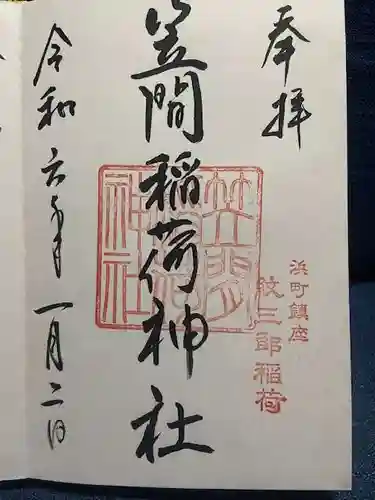 奉拝
浜町鎮座
紋三郎稲荷
笠間稲荷神社
笠間稲荷神社
令和六年一月二日